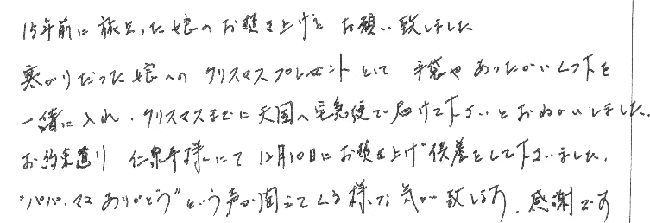 15年前に旅立った娘のお焚き上げを お願い致しました
寒がりだった娘への クリスマスプレゼントとして 手袋や あったかい を
一緒に入れ、クリスマスまでに天国へ宅急便で届けて下さいとおねがいしました。
お約束通り にて 12月10日にお焚き上げ供養をして下さいました。
"パパ、ママ ありがとう"という声が聞えてくる様な気が致します 感謝です